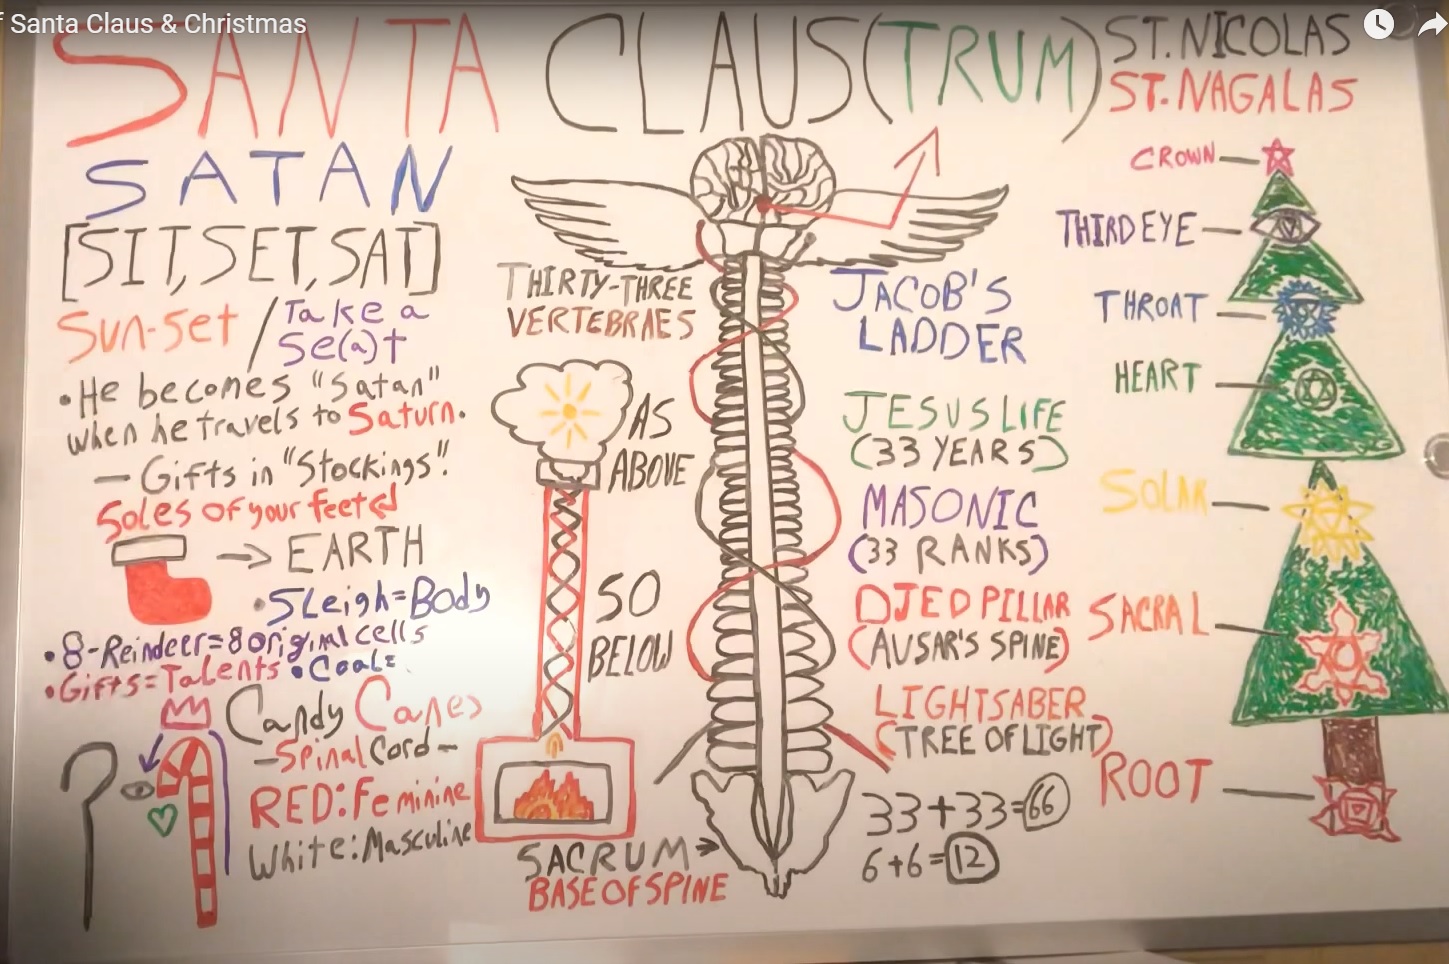 Santa Claus & Christmas
SANTA CLAUS(TRUM)
ST. NICOLAS
ST. NAGALAS
SATAN
[SIT, SET, SAT]
Sun-set / Take a
Se(a)t
• He becomes "Satan"
when he travels to Saturn.
— Gifts in "Stockings"!
Soles of your feet
→ EARTH
• Sleigh = Body
• 8-Reindeer = 8 original cells
• Gifts = Talents • Coal =
Candy Canes
- Spinal Cord -
RED: Feminine
White: Masculine
THIRTY-THREE
VERTEBRAES
AS
ABOVE
SO
BELOW
SACRUM →
BASE OF SPINE
JACOB'S
LADDER
JESUS LIFE
(33 YEARS)
MASONIC
(33 RANKS)
DJED PILLAR
(AUSAR'S SPINE)
LIGHTSABER
(TREE OF LIGHT)
33+33=66
6+6=12
CROWN
THIRD EYE
THROAT
HEART
SOLAR
SACRAL
ROOT